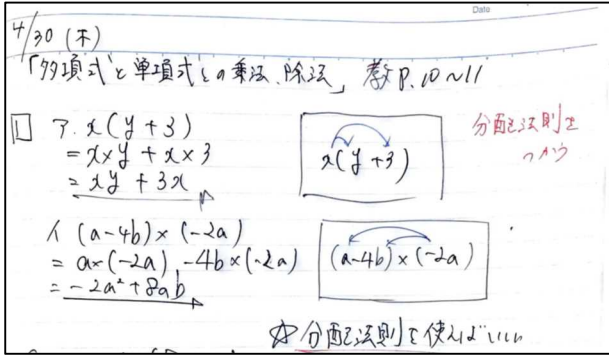 Date
4/30 (木)
「多項式と単項式との乗法、除法」 教P.10~11
1 ア. x(y+3)
= x×y + x×3
= xy + 3x
x(y+3)
分配法則を
つかう
イ (a-4b)×(-2a)
= a×(-2a) -4b×(-2a)
= -2a²+8ab
(a-4b)×(-2a)
☆分配法則を使えばいい